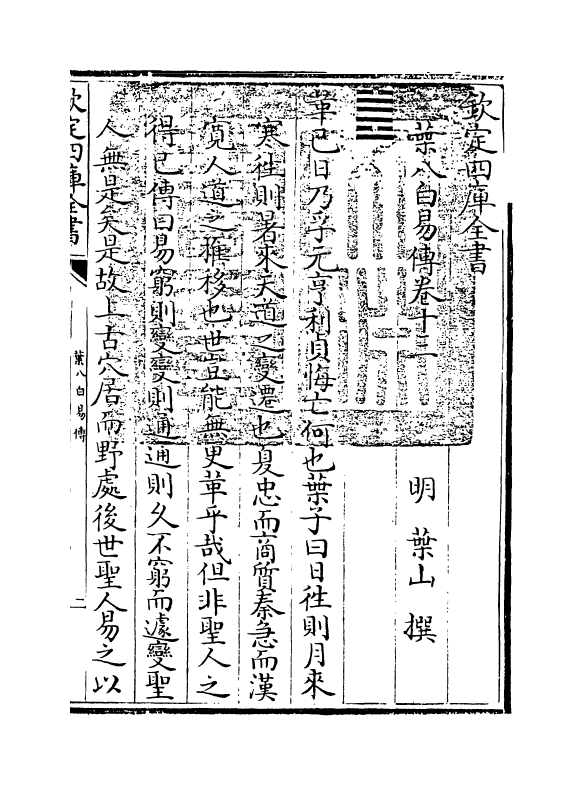 欽定四庫全書
葉八白易傳卷十三
明 葉山 撰
革已日乃孚元亨利貞悔亡何也葉子曰日徃則月來
寒徃則暑來天道之變遷也夏忠而商質秦急而漢
寛人道之推移也世豈能無更革乎哉但非聖人之
得已傳曰易窮則變變則通通則久不窮而遽變聖
人無是矣是故上古穴居而野處後世聖人易之以
欽定四庫全書
葉八白易傳